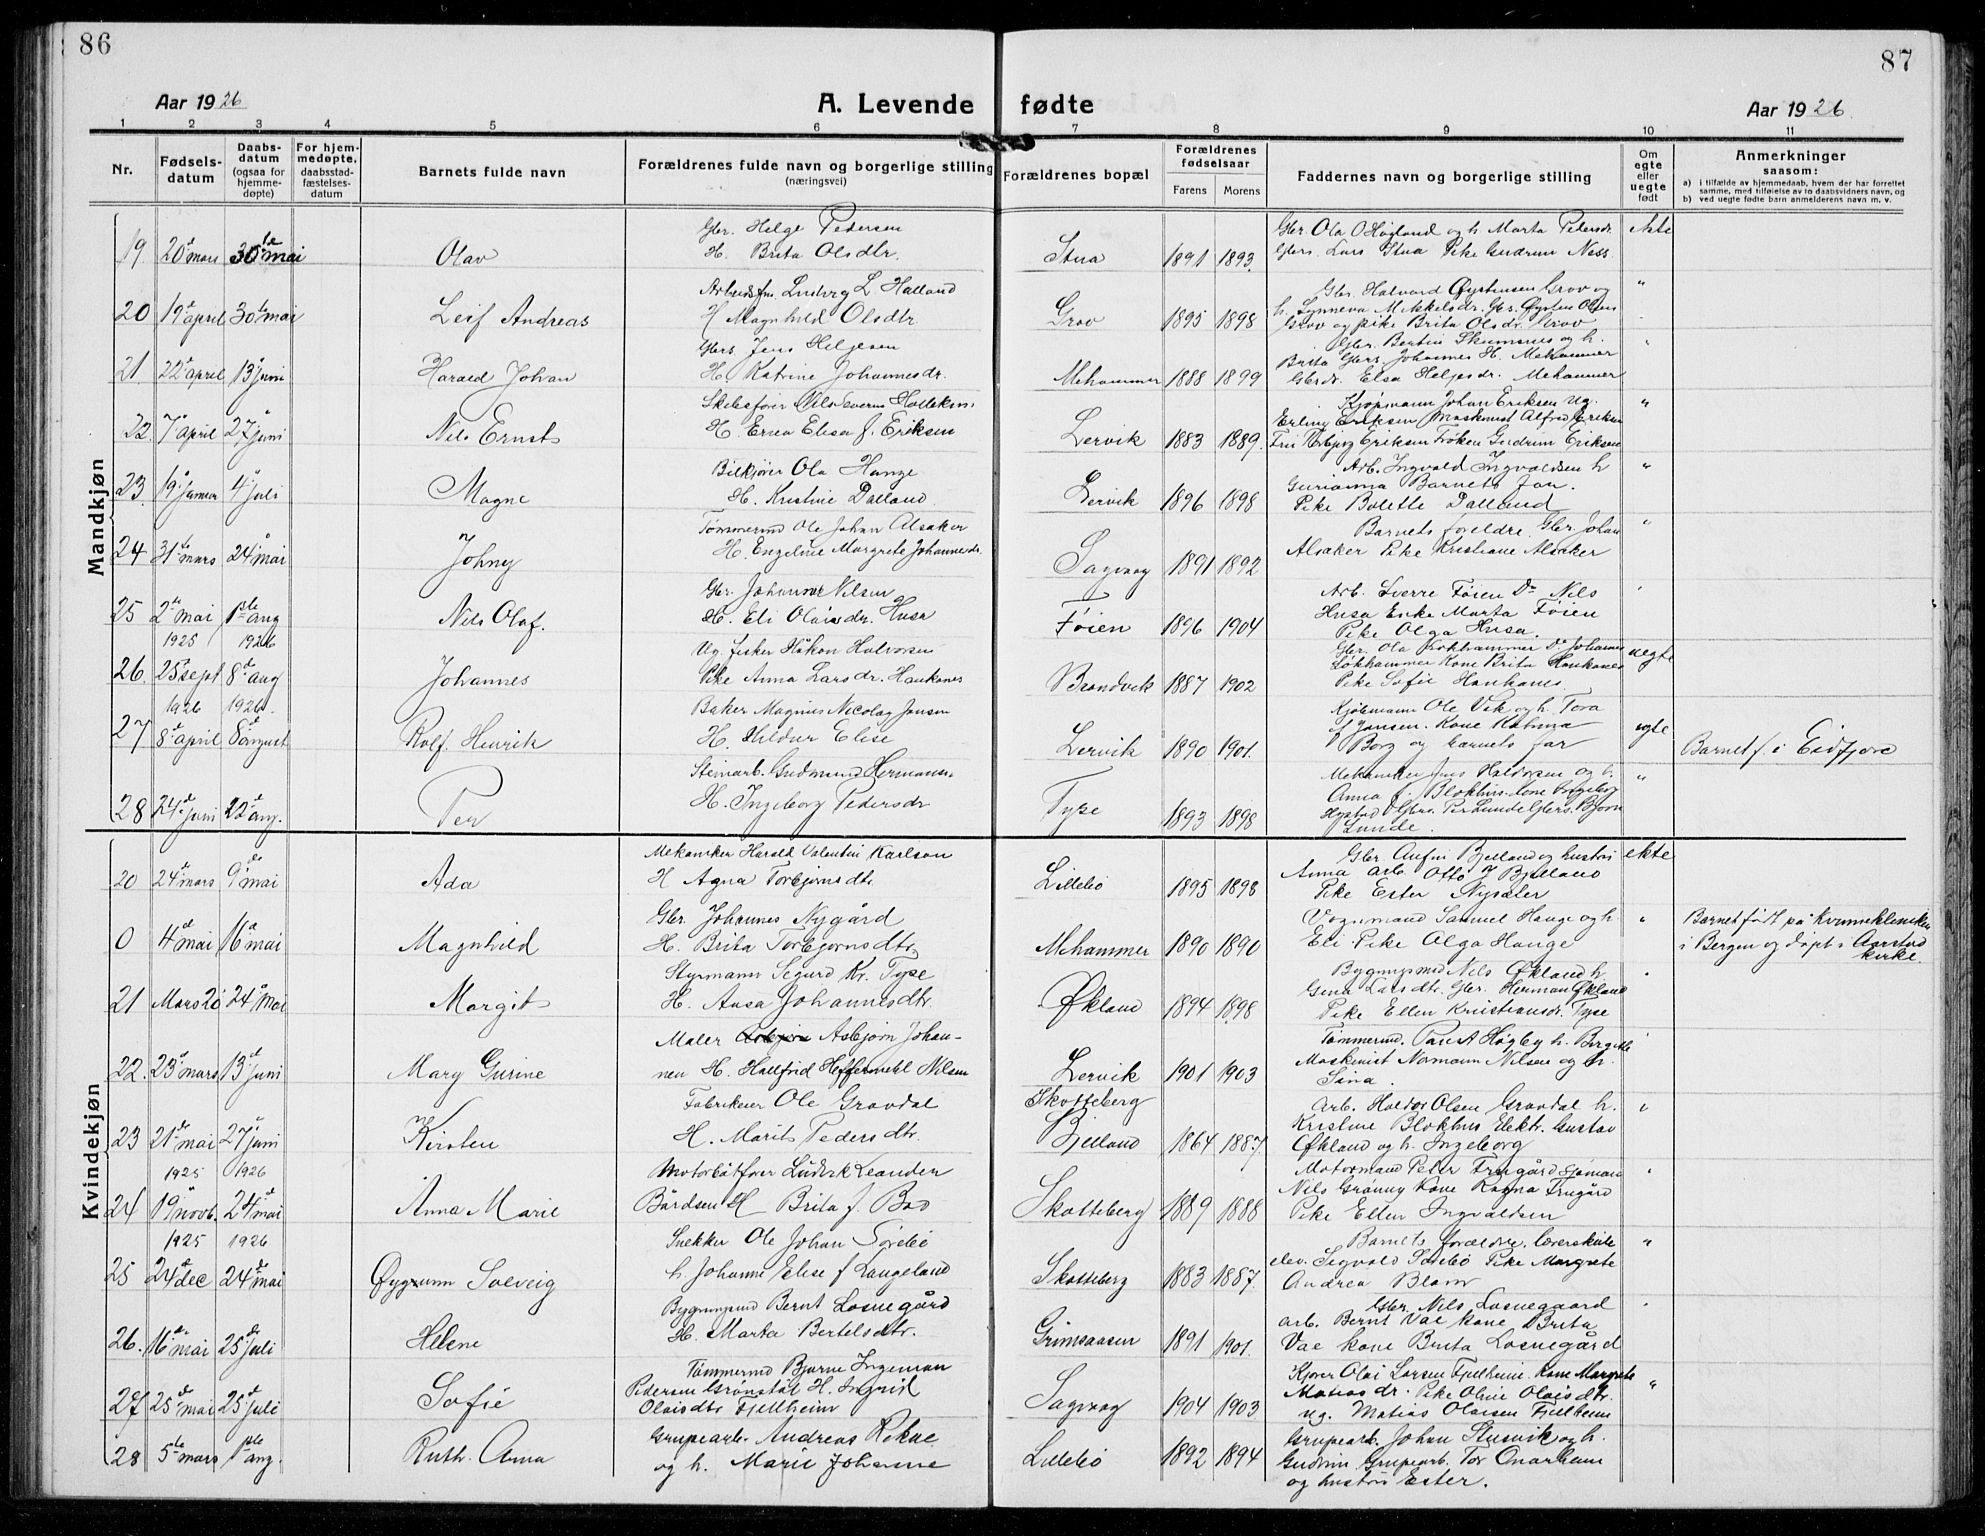 86
87
Aar 1926
A. Levende fødte
Aar 1926
1 2 3 4 5 6 7 8 9 10 11
Nr.
Fødsels-
datum
Daabs-
datum
(ogsaa for
hjemme-
døpte)
For hjem-
medøpte,
daabsstad-
fæstelses-
datum
Barnets fulde navn
Forældrenes fulde navn og borgerlige stilling
(næringsvei)
Forældrenes bopæl
Forældrenes
fødselsaar
Farens Morens
Faddernes navn og borgerlige stilling
Om
egte
eller
uegte
født
Anmerkninger
saasom:
a) i tilfælde av hjemmedaab, hvem der har forrettet
samme, med tilføielse av to daabsvidners navn, og
b) ved uegte fødte barn anmelderens navn m. v.
Mandkjøn
Gbr. Helge Pedersen
H. Brita Olsdtr.
19. 20de mars 30te mai Olav Stua 1891 1893.
Gbr. Ola O Høgland og h. Marta Petersdr. ekte
Gbrs. Lars Stua Pike Gudrun Ness
Arbeidsfm. Ludvig L Halland
20 19de april 30te mai Leif Andreas H Magnhild Olsdtr. Grov 1895 1898
Gbr. Halvard Øystensen Grov og "
h. Synneva Mikkelsdr. Gbr. Øysten Olsen
Grov og pike Brita Olsdr. Grov
Gbrs Jens Helgesen
21 22de april 13de juni Harald Johan H. Katrine Johannesdr. Mehammer 1888 1899
Gbr. Bertin Skumsnes og h. "
Brita Gbrs. Johannes H. Mehammer
Gbrdr. Elsa Helgesdr. Mehammer
Skibsfører Nils Severin
22. 7de april 27de juni Nils Ernst H. Erna Elisa f. Eriksen Lervik 1883 1889.
Kjøpmann Johan Eriksen ug. "
Erling Eriksen Maskinist Alfred Eriksen
Eriksen Frøken Gudrun Eriksen
Bilkjører Ola Hauge
23. 19de januar 4de juli Magne H. Kristine Dalland Lervik 1896 1898
Arb. Ingvald Ingvaldsen h "
Gurianna Barnets far.
Pike Bolette Dalland
Tømmermd Ole Johan Alsaker
24 31te mars 24de mai Johny H. Engeline Margrete Johannesdr. Sagvaag 1891 1892
Barnets foreldre. Gbr. Johan "
Alsaker Pike Kristiane Alsaker
Gbr. Johannes Nilsen
25 2de mai 1ste aug Nils Olaf. H. Eli Olaisdr. Husa Føien 1896 1904
Arb. Sverre Føien Do Nils "
Husa Enke Marta Føien
Pike Olga Husa.
1925 1926
Ug. fisker Håkon Halvorsen
26. 25de sept 8de aug Johannes Pike Anna Larsdr. Haukanes Brandvik 1887 1902
Gbr. Ola Do Johannes uegte
Kone Brita Haukanes
Pike Sofie
1926 1926.
Baker Magnus Nicolay Jansen
27 8de april 8de august Rolf Henrik H. Hildur Elise Lervik 1890 1901.
Kjøbmann Ole Vik og h. Tora
f Jansen. Kone Katrina egte
Borg og barnets far Barnet f. i Eidfjord
Steinarb. Gudmund Hermansen
28 24de juni 22de aug. Per H. Ingeborg Pedersdr Tyse 1893 1898
Mekaniker Jens Haldorsen og h. "
Anna f. Blokhus. Kone Ingeborg
Hystad Gbr. Per Lunde Gbrs. Bjørn
Lunde.
Kvindekjøn
Mekaniker Harald Valentin Karlson
20 24de mars 9de mai Ada H Agna Torbjørnsdtr. Lillebø 1895 1898
Gbr. Anfin Bjelland og hustru ekte
Anna arb Otto J Bjelland
Pike Ester Nysæter
Gbr. Johannes Nygård
0 4de mai 16de mai Magnhild H. Brita Torbjørnsdtr. Mehammer 1890 1890
Vognmand Samuel Hauge og h. "
Eli Pike Olga Hauge
Barnet født på Kvinneklinikken
i Bergen og døpt i Aarstad
kirke.
Styrmann Sigurd Kr. Tyse
21 Mars 20 24de mai Margit H. Aasa Johannesdtr. Økland 1894 1898
Bygningsmd Nils Økland h. "
Gina Larsdtr. Gbr. Herman Økland
Pike Ellen Kristiansdr. Tyse
Maler Asbjørn Johan-
22. 23de mars 13de juni Mary Gurine nen H. Hallfrid Heffermehl Nilsen Lervik 1901 1903
Tømmermd. Paul A Høgby h. Birgitte "
Maskinist Normann Nilsen og h.
Sina.
Fabrikeier Ole Gravdal
23 21de mai 27de juni Kirsten H. Marit Pedersdtr. Skotteberg
Bjelland 1864 1887.
Arb. Haldor Olsen Gravdal h. "
Kristine Blokhus Elektr. Gustav
Økland og h. Ingeborg
1925 1926
Motorbåtfører Ludvik Leander
24 19de novb. 24de mai Anna Marie Bårdsen H Brita f. Bø Skotteberg 1889 1888
Motormand Peter Trugård Sjømann "
Nils Grønny Kone Ragna Trugård
Pike Ellen Ingvaldsen
1925 1926
Snekker Ole Johan Sørebø
25 24de dec 24de mai Øygunn Solveig h. Johanne Elise f Langeland Skotteberg 1883 1887.
Barnets forældre. Lærerskole "
elev. Sigvald Sørebø Pike Margrete
Andrea Blom
Bygningsmd Bernt Losnegård
26. 16de mai 25de juli Helene H. Marta Bertelsdtr. Grimsaasen 1891 1901.
Gbr. Nils Losnegaard "
arb. Bernt Vae kone Brita
Vae kone Brita Losnegård
Tømmermd Bjarne Ingeman
27 25de mai 25de juli Sofie Pedersen Grønståt H. Ingrid
Olaisdtr Fjellheim Sagvag 1904 1903
Kjører Olai Larsen Fjellheim. Kone Margrete
Matiasdr. Pike Oline Olaisdtr. "
ug. Matias Olaisen Fjellheim
Grupearb. Andreas Rokne
28 5te mars 1ste aug. Ruth Anna og h. Marie Johanne Lillebø 1892 1894
Grupearb. Johan Stusvik og h.
Gudrun Grupearb. Tor Onarheim
og hustru Ester.